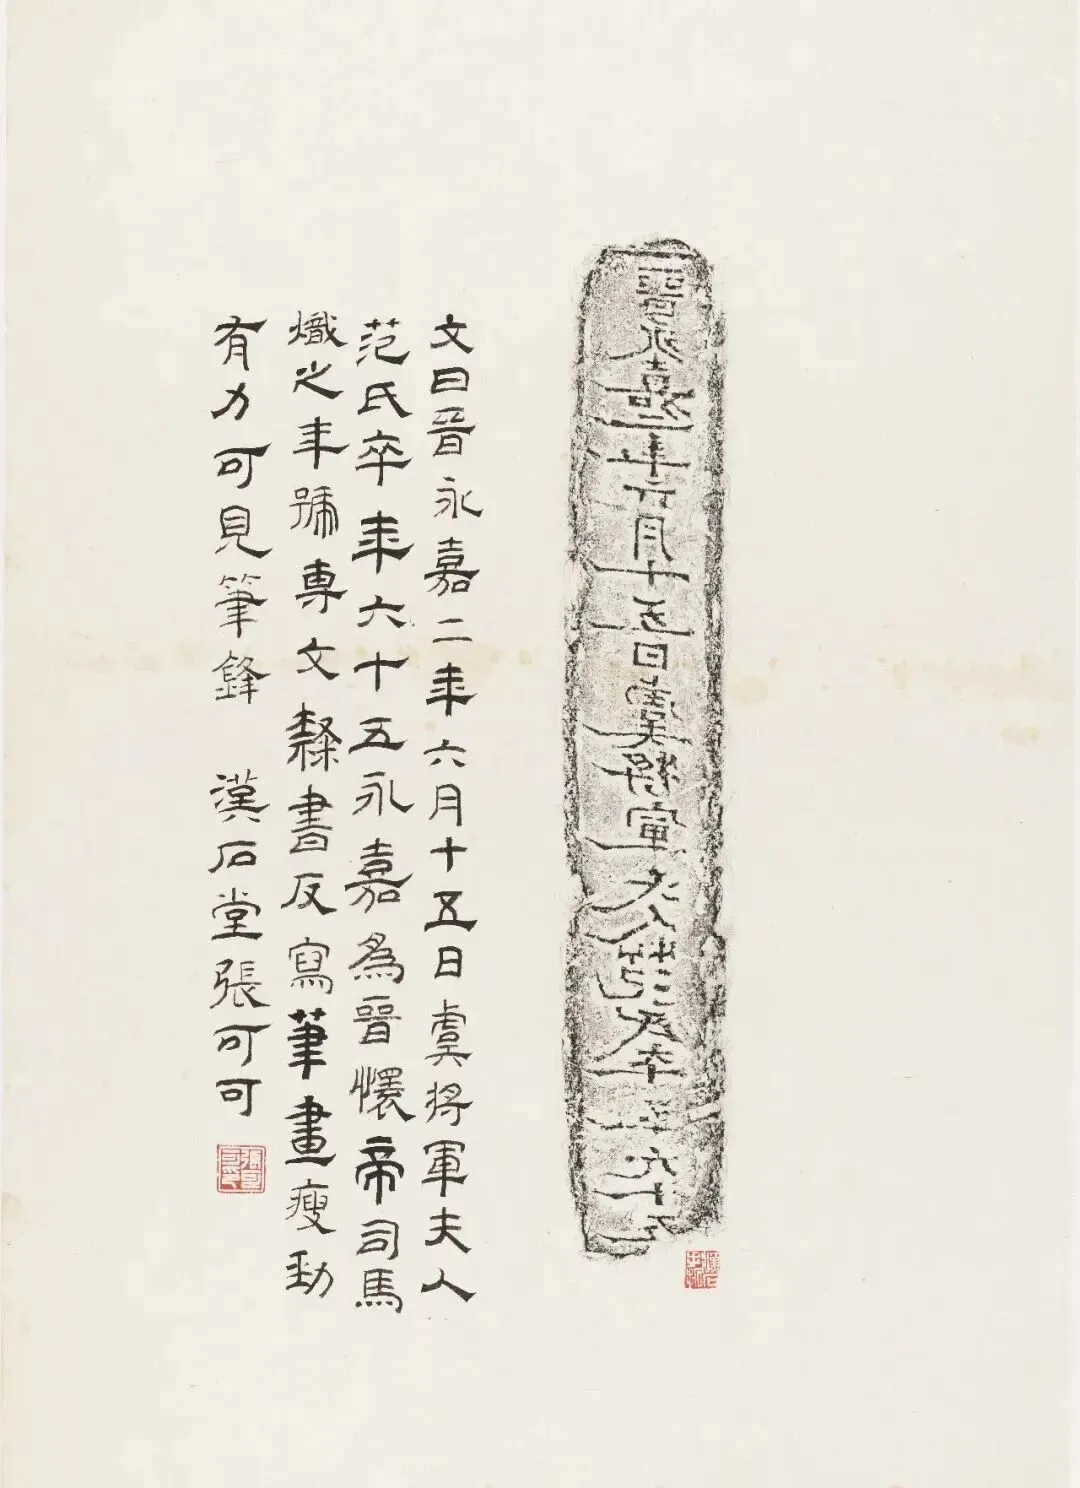 晉永嘉二年六月十五日虞將軍夫人范氏卒年六十五
文曰晉永嘉二年六月十五日虞將軍夫人
范氏卒年六十五永嘉爲晉懷帝司馬
熾之年號專文隸書反寫筆畫瘦勁
有力可見筆鋒 漢石堂張可可